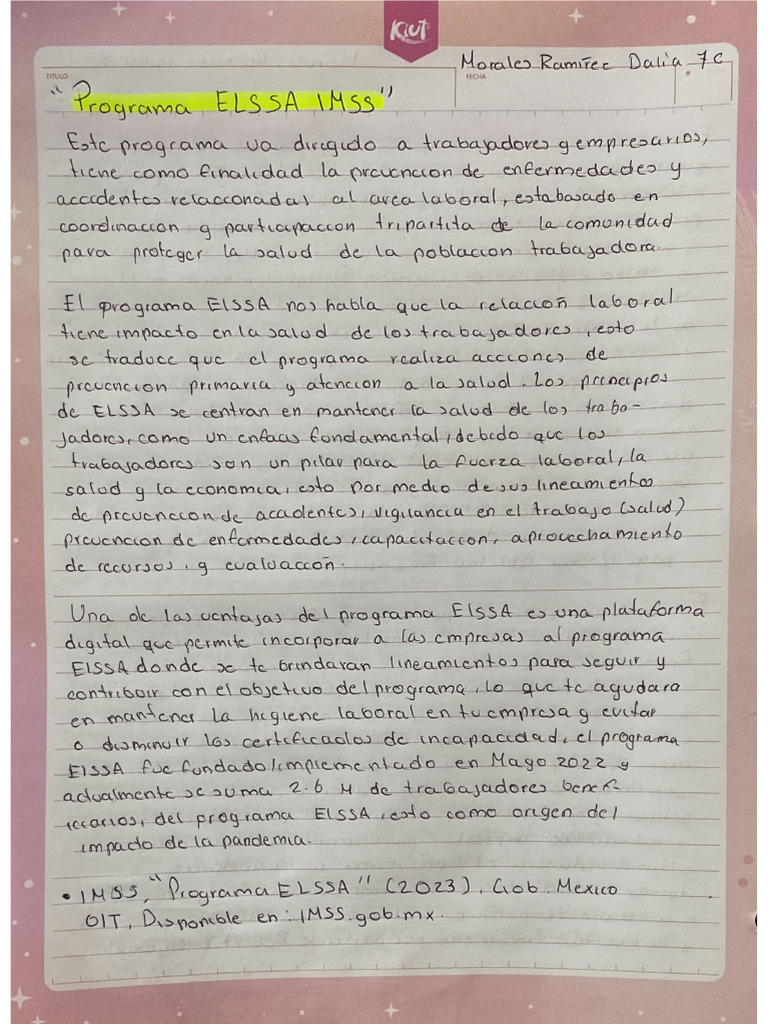 Kiut
Morales Ramirez Dalia 7C
TITULO
FECHA
"Programa ELSSA IMSS"
Este programa va dirigido a trabajadores y empresarios,
tiene como finalidad la prevencion de enfermedades y
accidentes relaccionadas al area laboral, esta basado en
coordinacion y participaccion tripartita de la comunidad
para proteger la salud de la poblacion trabajadora.
El programa ElSSA nos habla que la relacion laboral
tiene impacto en la salud de los trabajadores, esto
se traduce que el programa realiza acciones de
prevencion primaria y atencion a la salud. Los principios
de ELSSA se centran en mantener la salud de los traba-
jadores, como un enfoas fundamental, debido que los
trabajadores son un pilar para la fuerza laboral, la
salud y la economia, esto por medio de sus lineamientos
de prevencion de accidentes, vigilancia en el trabajo (salud)
prevencion de enfermedades, capacitacion, aprovechamiento
de recursos, y evaluaccion.
Una de las ventajas del programa ElSSA es una plataforma
digital que permite incorporar a las empresas al programa
ElSSA donde se te brindaran lineamientos para seguir y
contribuir con el objetivo del programa, lo que te ayudara
en mantener la higiene laboral en tu empresa y evitar
o disminuir los certificados de incapacidad, el programa
ElSSA fue fundado/implementado en Mayo 2022 y
actualmente se suma 2.6 M de trabajadores benefi
ciarios, del programa ElSSA, esto como origen del
impacto de la pandemia.
• IMSS, "Programa ELSSA" (2023). Gob. Mexico
OIT, Disponible en: IMSS.gob.mx.